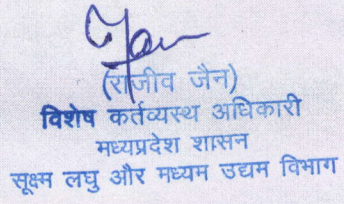 (राजीव जैन)
विशेष कर्तव्यस्थ अधिकारी
मध्यप्रदेश शासन
सूक्ष्म लघु और मध्यम उद्यम विभाग